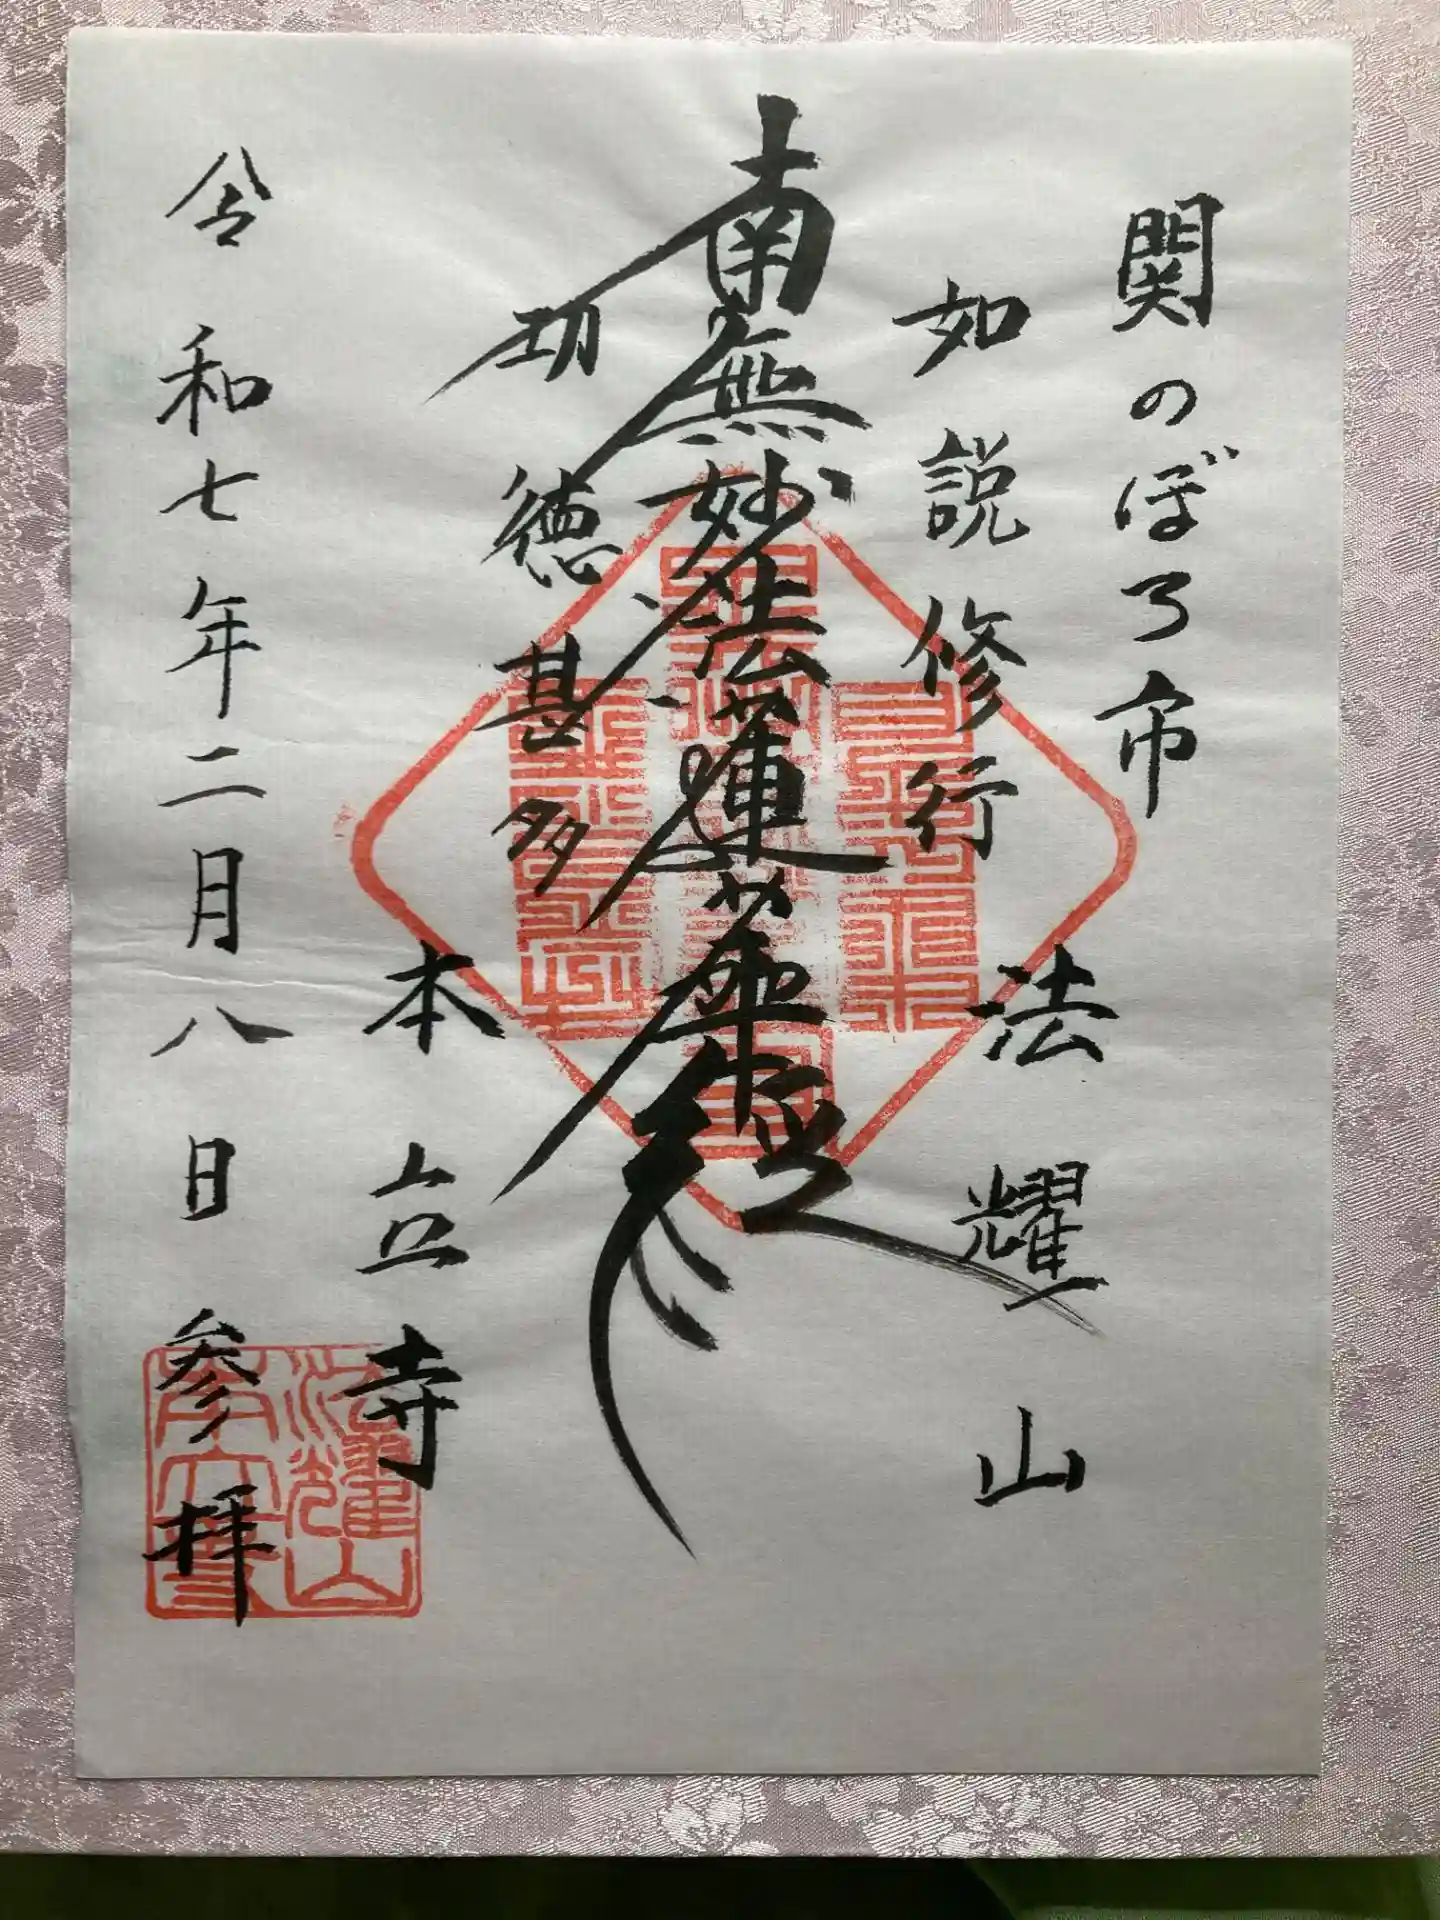 関のぼろ市
如説修行
法耀山
南無妙法蓮華経
功徳甚多
本立寺
令和七年二月八日参拝
法耀山
本立寺